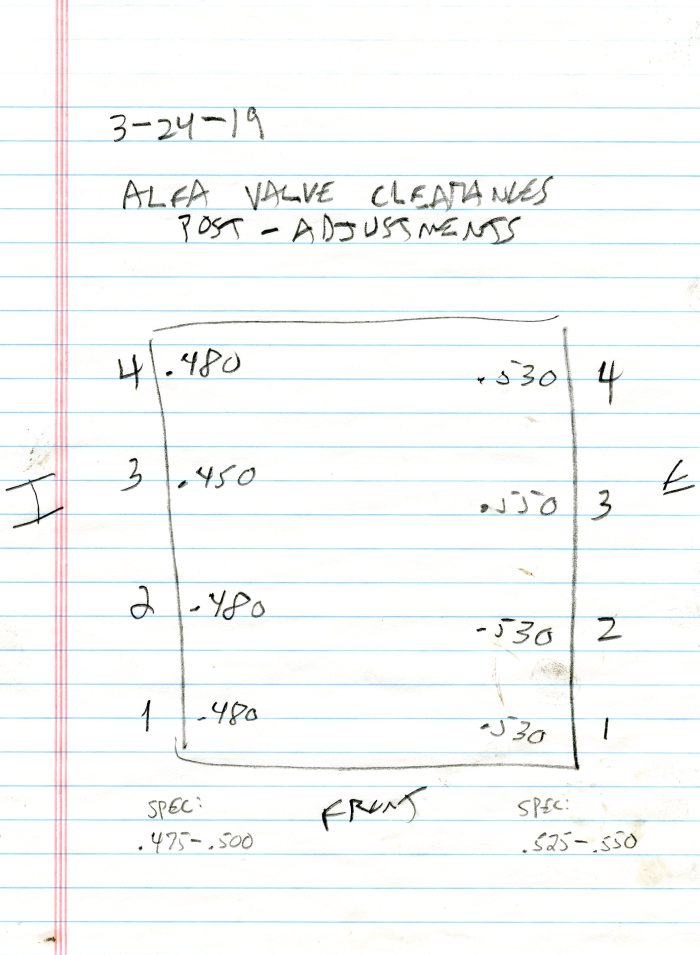 3-24-19
ALFA VALVE CLEARANCES
POST - ADJUSTMENTS
4 .480 .530 4
3 .450 .550 3
I E
2 .480 .530 2
1 .480 .530 1
SPEC: FRONT SPEC:
.475-.500 .525-.550